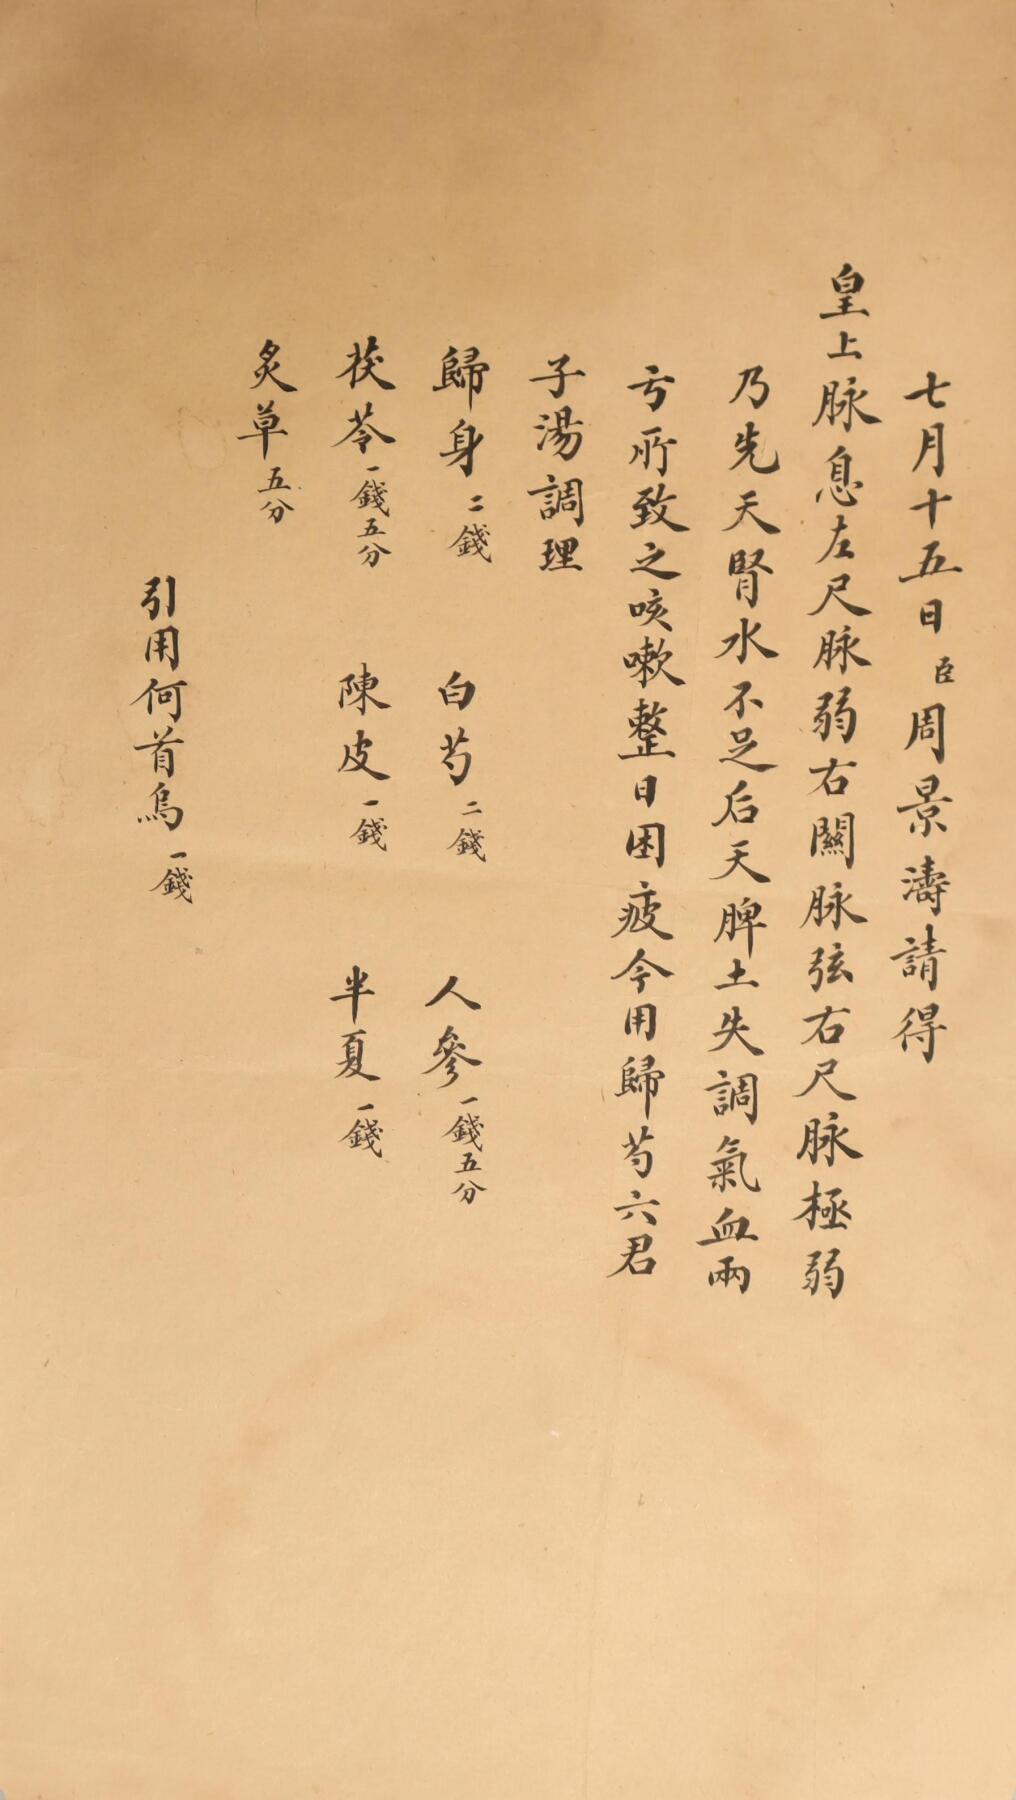 七月十五日臣周景濤請得
皇上脉息左尺脉弱右關脉弦右尺脉極弱
乃先天腎水不足后天脾土失調氣血兩
亏所致之咳嗽整日困疲今用歸芍六君
子湯調理
歸身二錢 白芍二錢 人參一錢五分
茯苓一錢五分 陳皮一錢 半夏一錢
炙草五分
引用何首烏一錢